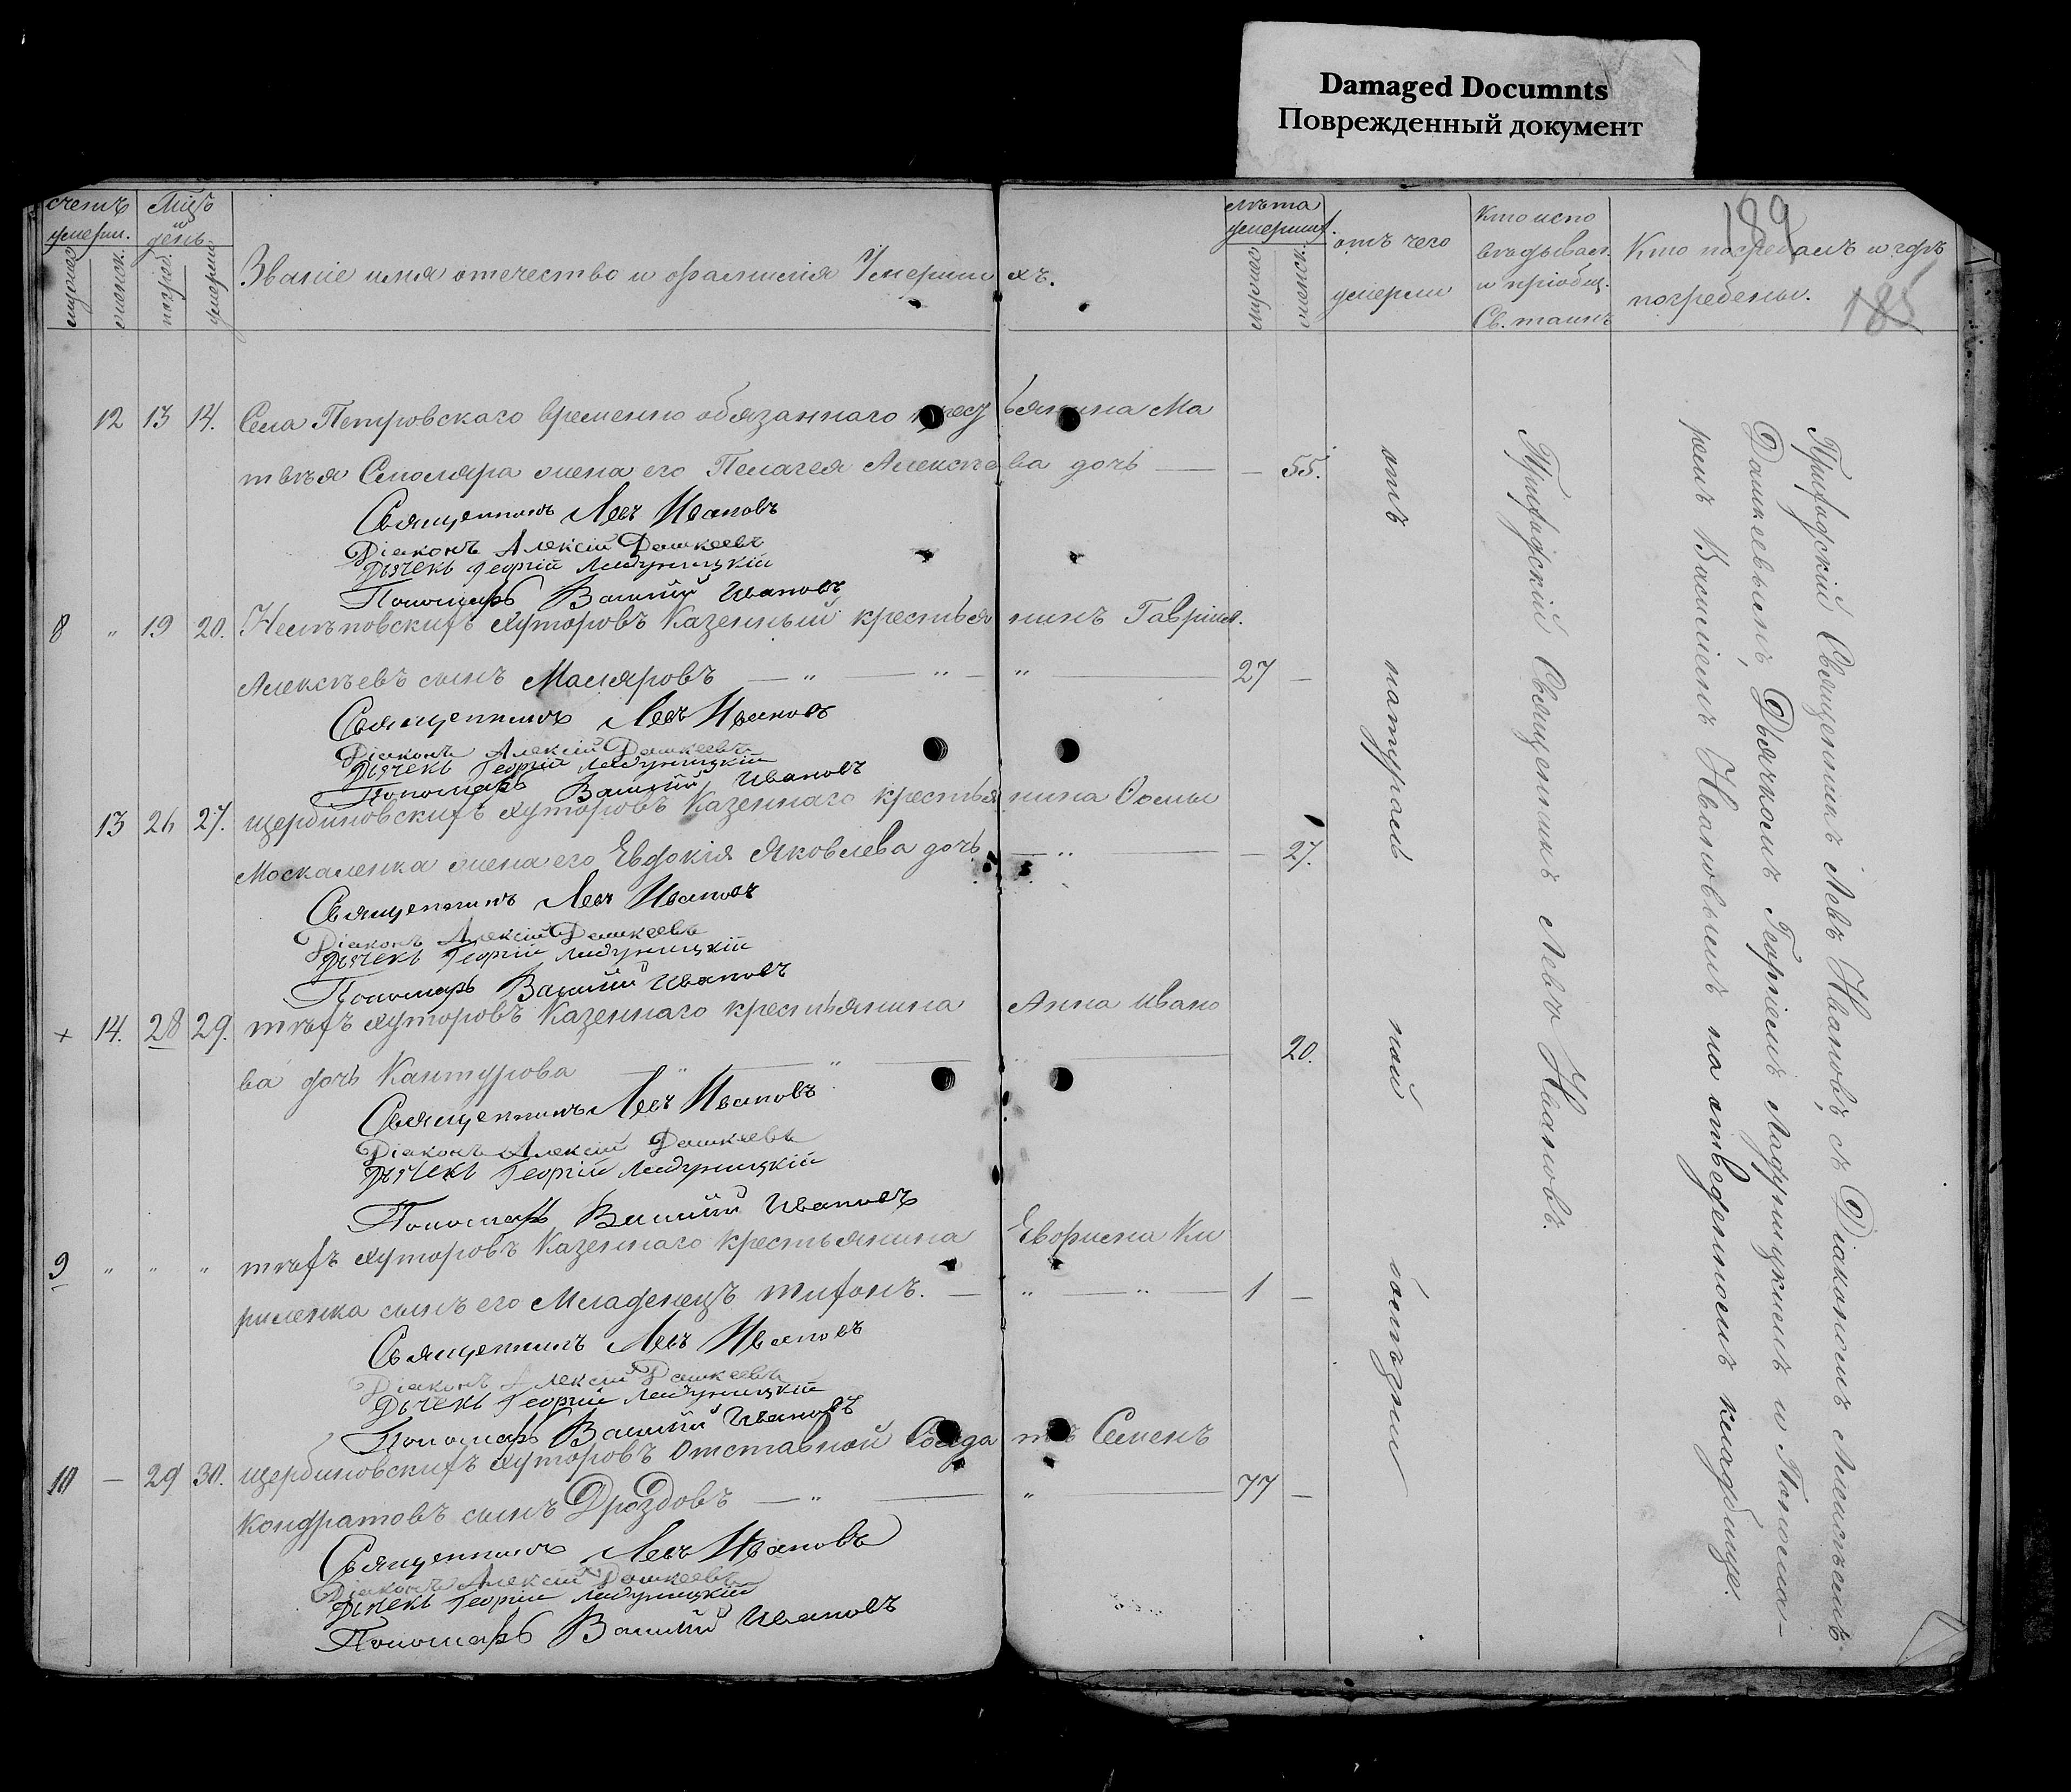 Damaged Documnts
Поврежденный документ
189
185
счетъ умерш.
Мцъ день
Званіе имя отечество и фамилія Умершихъ.
лѣта умерших.
отъ чего умерли
Кто испо
вѣдывал.
и пріобщ.
Св. таинъ
Кто погребалъ и гдѣ
погребены.
мужеска
женск.
погреб.
умерш.
12 13 14. Села Петровскаго временно обязаннаго крестьянина Ма
твѣя Столяра жена его Пелагея Алексѣева дочь — — 55.
Священникъ Левъ Ивановъ
Діаконъ Алексій Дашкеевъ
Дьячекъ Георгій Ладуницкій
Пономарь Василій Ивановъ
8 " 19 20. Хуторовъ Казенный крестьянинъ Гавріил.
Алексѣевъ сынъ Маляровъ — " — " — " — 27 —
Священникъ Левъ Ивановъ
Діаконъ Алексій Дашкеевъ
Дьячекъ Георгій Ладуницкій
Пономарь Василій Ивановъ
13 26 27. щербиновскихъ хуторовъ Казеннаго крестьянина Ѳомы
Москаленка жена его Евдокія Яковлева дочь — " — — 27.
Священникъ Левъ Ивановъ
Діаконъ Алексій Дашкеевъ
Дьячекъ Георгій Ладуницкій
Пономарь Василій Ивановъ
+ 14. 28 29. тѣхъ хуторовъ Казеннаго крестьянина Анна Ивано
ва дочь Кантурова — " — " — " — 20.
Священникъ Левъ Ивановъ
Діаконъ Алексій Дашкеевъ
Дьячекъ Георгій Ладуницкій
Пономарь Василій Ивановъ
9 " " " тѣхъ хуторовъ Казеннаго крестьянина Ки
риленка сынъ его Младенецъ тихонъ. — " — " — 1 —
Священникъ Левъ Ивановъ
Діаконъ Алексій Дашкеевъ
Дьячекъ Георгій Ладуницкій
Пономарь Василій Ивановъ
10 — 29 30. щербиновскихъ хуторовъ Отставной Солдатъ Семенъ
Кондратовъ сынъ Дроздовъ — " — " — 77 —
Священникъ Левъ Ивановъ
Діаконъ Алексій Дашкеевъ
Дьячекъ Георгій Ладуницкій
Пономарь Василій Ивановъ
отъ натураль ной болѣзни
Приходскій Священникъ Левъ Ивановъ.
Приходскій Священникъ Левъ Ивановъ, съ Діакономъ Алексѣемъ
Дашкеевымъ, Дьячкомъ Георгіемъ Ладуницкимъ и Понома-
ремъ Василіемъ Ивановымъ на отведенномъ кладбище.